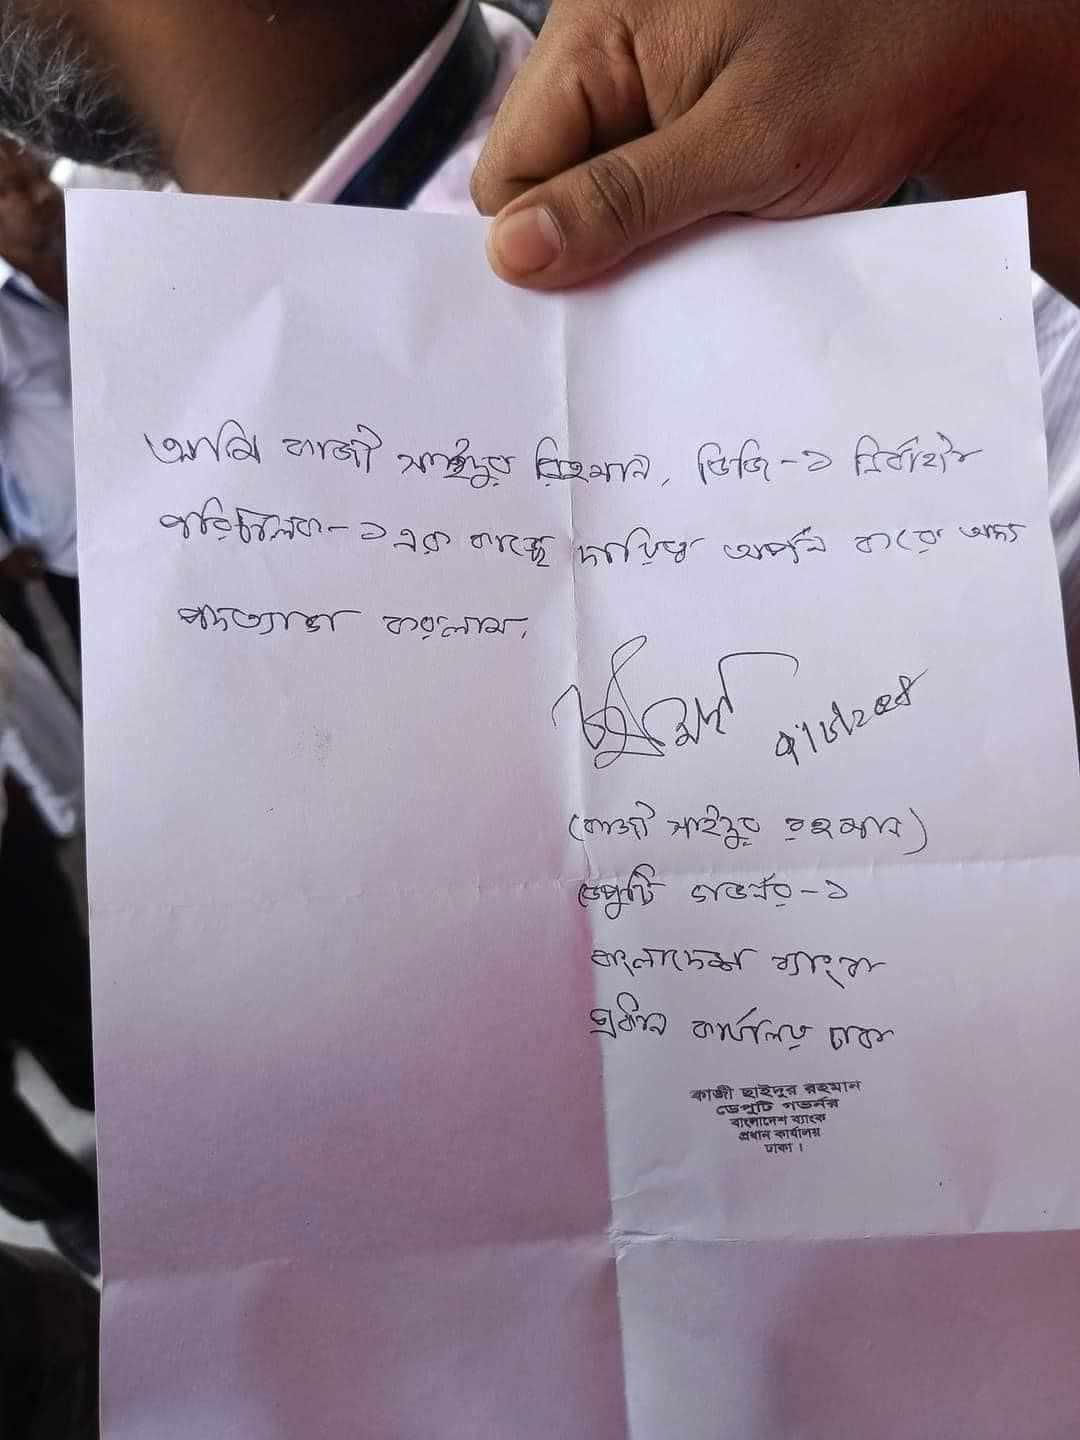 আমি কাজী সাইদুর রহমান, ডিজি-১ নির্বাহী
পরিচালক-১ এর কাছে দায়িত্ব অর্পন করে অদ্য
পদত্যাগ করলাম।
৭/৮/২০২৪
(কাজী সাইদুর রহমান)
ডেপুটি গভর্নর-১
বাংলাদেশ ব্যাংক
প্রধান কার্যালয় ঢাকা
কাজী ছাইদুর রহমান
ডেপুটি গভর্নর
বাংলাদেশ ব্যাংক
প্রধান কার্যালয়
ঢাকা ।